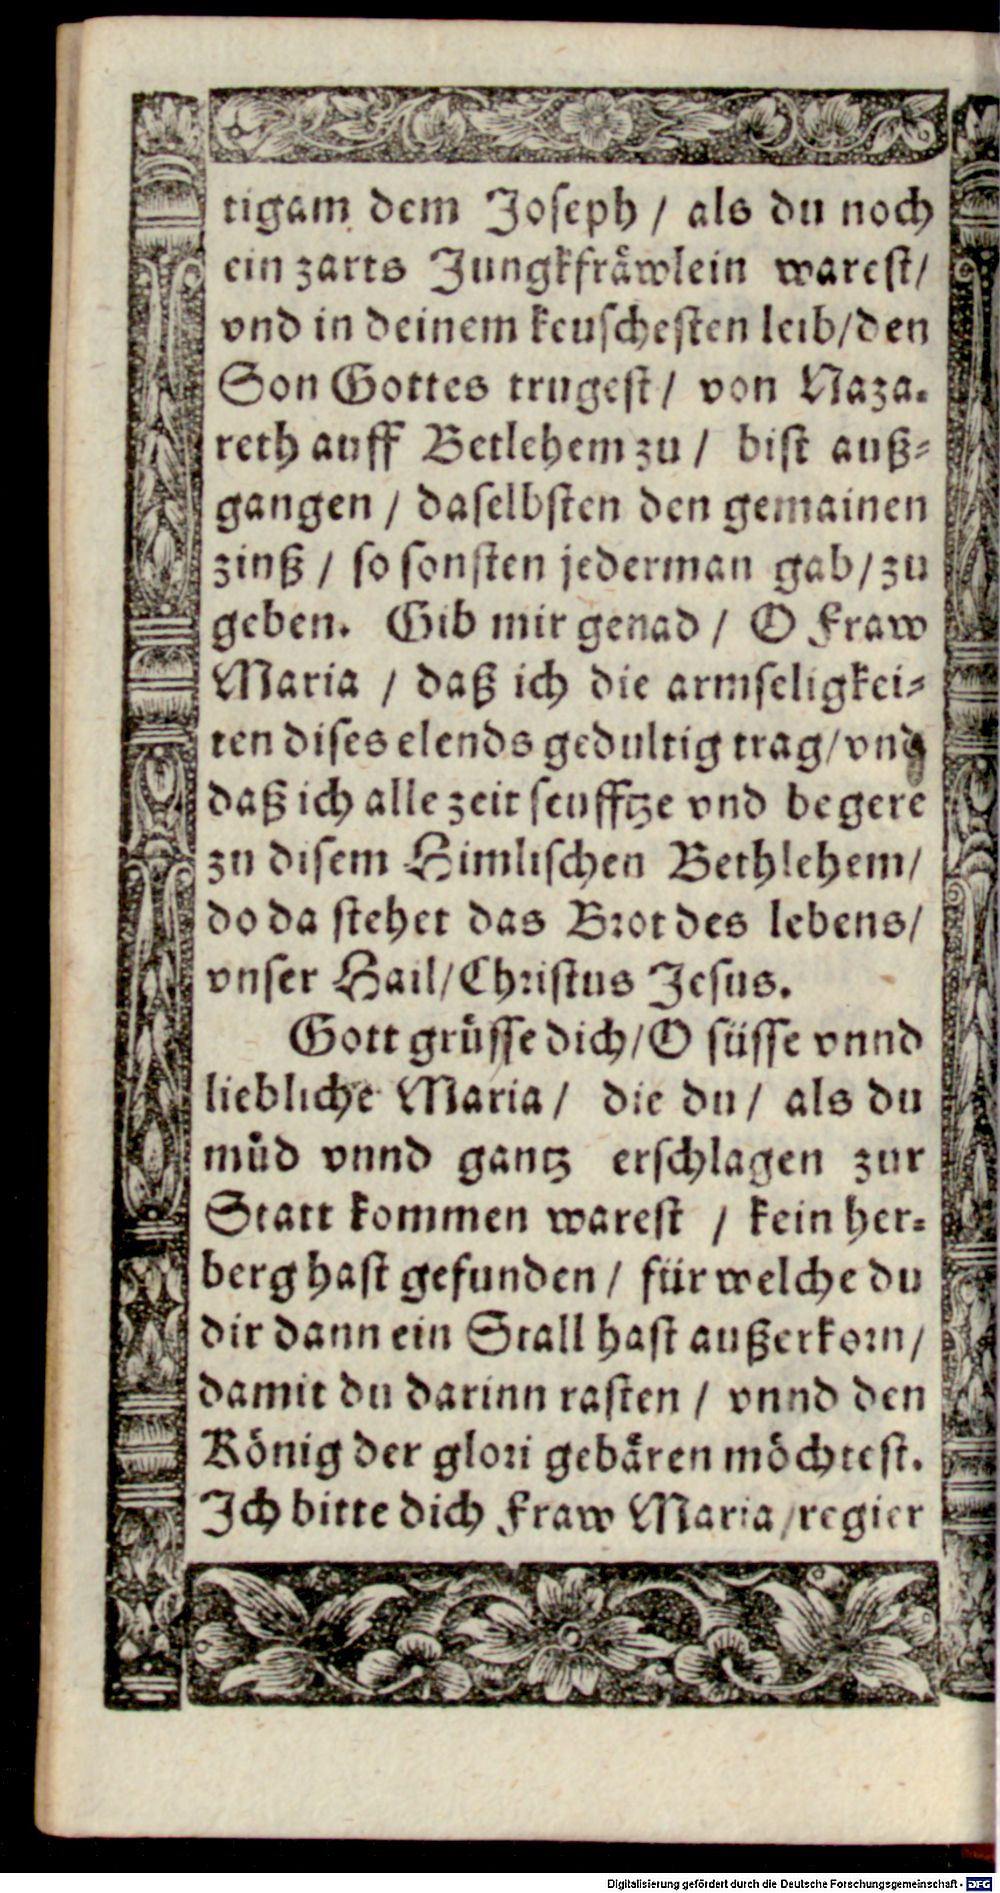 tigam dem Joseph / als du noch
ein zarts Jungkfraͤwlein warest/
vnd in deinem keuschesten leib/den
Son Gottes trugest / von Naza-
reth auff Betlehem zu / bist auß-
gangen / daselbsten den gemainen
zinß / so sonsten jederman gab/zu
geben. Gib mir genad / O Fraw
Maria / daß ich die armseligkei-
ten dises elends gedultig trag/vnd
daß ich alle zeit seufftze vnd begere
zu disem Himlischen Bethlehem/
do da stehet das Brot des lebens/
vnser Hail/Christus Jesus.
Gott gruͤsse dich/O süsse vnnd
liebliche Maria / die du / als du
muͤd vnnd gantz erschlagen zur
Statt kommen warest / kein her-
berg hast gefunden / für welche du
dir dann ein Stall hast außerkorn/
damit du darinn rasten / vnnd den
Koͤnig der glori gebaͤren moͤchtest.
Ich bitte dich Fraw Maria/regier
Digitalisierung gefördert durch die Deutsche Forschungsgemeinschaft - DFG